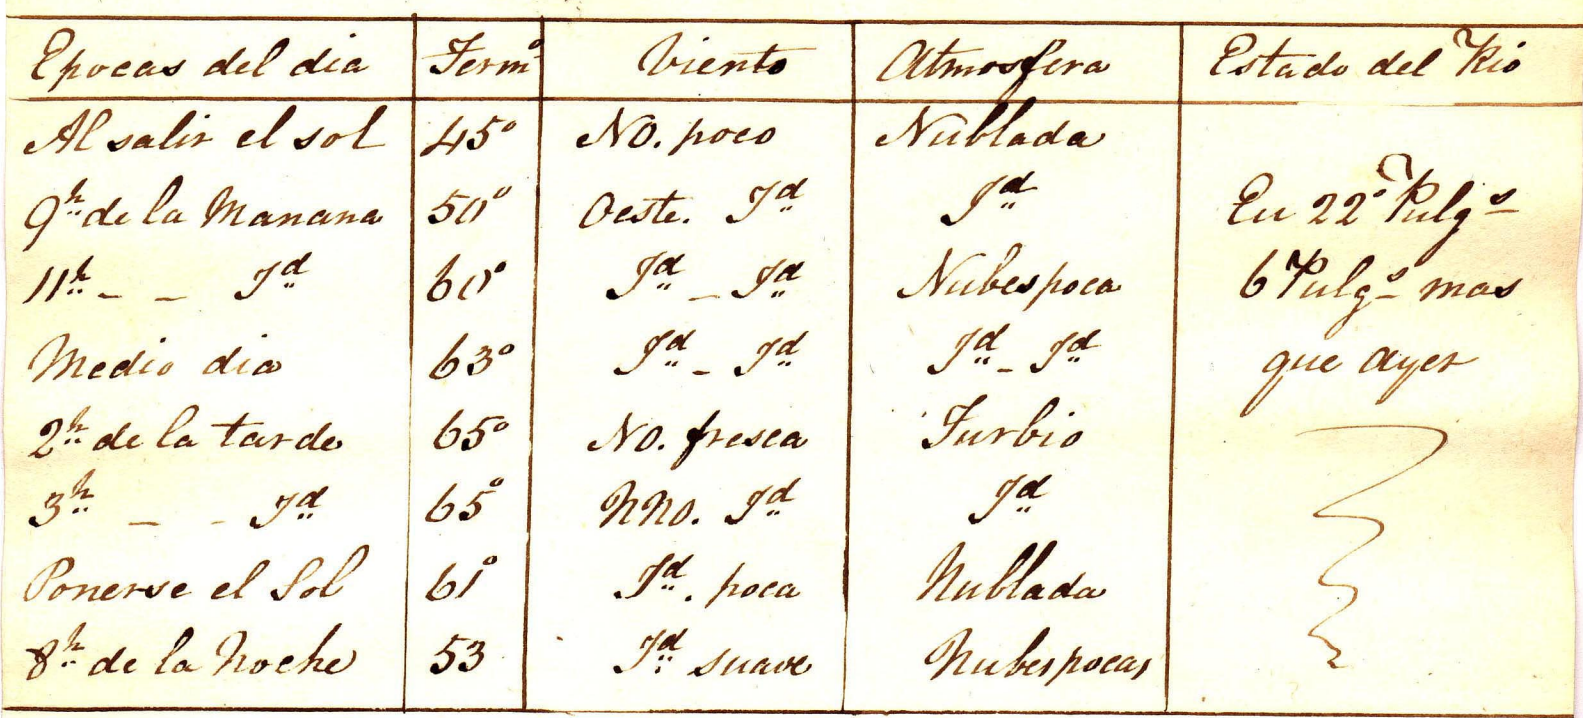 Epocas del dia Term.º Viento Atmosfera Estado del Rio
Al salir el sol 45º NO. poco Nublada
9h de la Manana 50º Oeste. Id Id En 22º Pulgs
11h - - Id 60º Id - Id Nubes poca 6 Pulgs mas
Medio dia 63º Id - Id Id - Id que ayer
2h de la tarde 65º NO. fresca Turbio
3h - - Id 65º NNO. Id Id
Ponerse el Sol 61º Id. poca Nublada
8h de la Noche 53 Id suave Nubes pocas